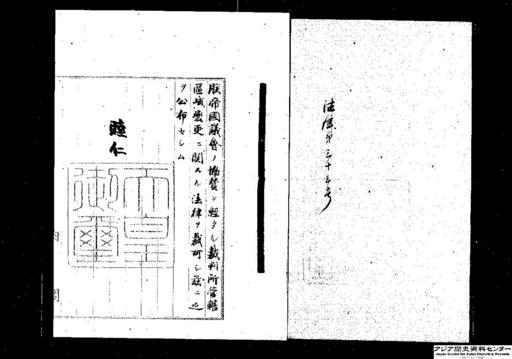 法律第三十三号
朕帝國議會ノ協賛ヲ經タル裁判所管轄
區域變更ニ關スル法律ヲ裁可シ茲ニ之
ヲ公布セシム
睦仁
天皇
御璽
アジア歴史資料センター
Japan Center for Asian Historical Records